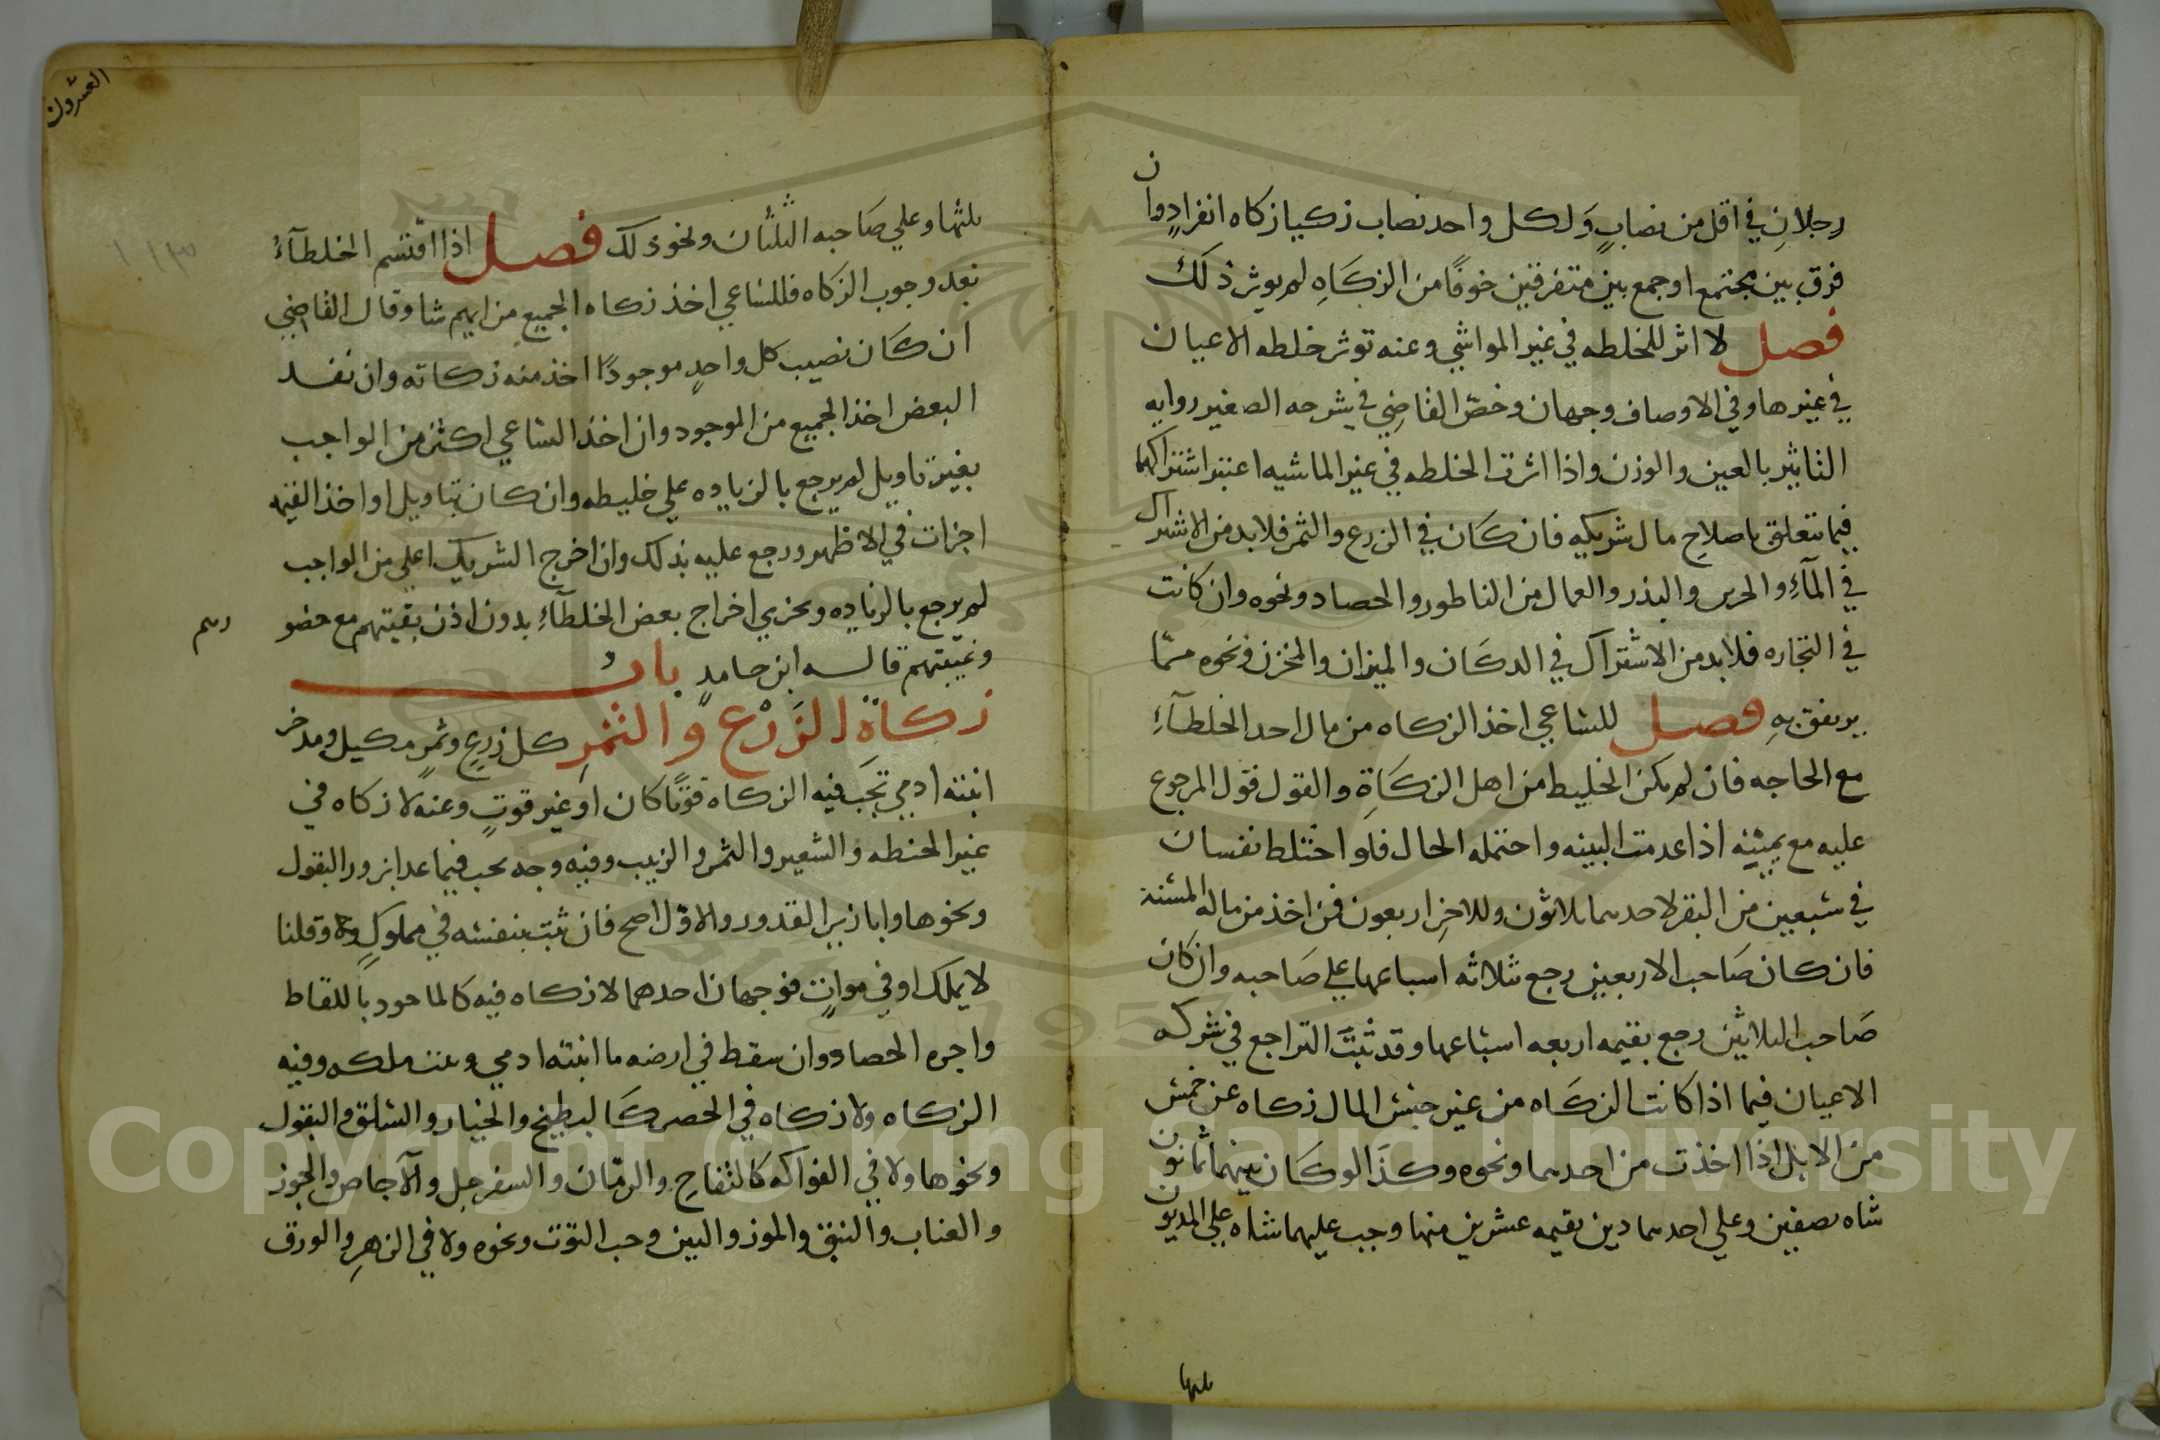 رجلان في اقل من نصاب ولكل واحد نصاب زكيا زكاه انفراد وان
فرق بين مجتمع او جمع بين متفرقين خوفا من الزكاه لم يوثر ذلك
فصل لا اثر للخلطه في غير المواشي وعنه توثر خلطه الاعيان
في غيرها وفي الاوصاف وجهان وخص القاضي في شرحه الصغير روايه
التاثير بالعين والوزن واذا اثرت الخلطه في غير الماشيه اعتبر اشتراكهما
فيما يتعلق باصلاح مال شريكيه فان كان في الزرع والثمر فلا بد من الاشتراك
في المآء والحرس والبذر والعمال من الناطور والحصاد ونحوه وان كانت
في التجاره فلا بد من الاشتراك في الدكان والميزان والمخزن ونحوه مما
يرتفق به فصل للساعي اخذ الزكاه من مال احد الخلطآء
مع الحاجه فان لم يكن الخليط من اهل الزكاة والقول قول المرجوع
عليه مع يمينه اذا عدمت البينه واحتمله الحال فلو اختلط نفسان
في سبعين من البقر لاحدهما ثلاثون وللاخر اربعون فمن اخذ من ماله المسنة
فان كان صاحب الاربعين رجع بثلاثه اسباعها على صاحبه وان كان
صاحب الثلاثين رجع بقيمه اربعه اسباعها وقد ثبت التراجع في شركه
الاعيان فيما اذا كانت الزكاه من غير جنس المال زكاه عن خمس
من الابل اذا اخذت من احدهما ونحوه وكذا لو كان بينهما ثمانون
شاه نصفين وعلي احدهما دين بقيمه عشرين منها وجب عليهما شاه علي المديون
ثلثها
العشرون
١١٣
ثلثها وعلي صاحبه الثلثان ونحو ذلك فصل اذا اقتسم الخلطآء
بعد وجوب الزكاه فللساعي اخذ زكاه الجميع من ايهم شا وقال القاضي
ان كان نصيب كل واحد موجودا اخذ منه زكاته وان فقد
البعض اخذ الجميع من الموجود وان اخذ الساعي اكثر من الواجب
بغير تاويل لم يرجع بالزياده علي خليطه وان كان بتاويل او اخذ القيمه
اجزات في الاظهر ورجع عليه بذلك وان اخرج الشريك اعلي من الواجب
لم يرجع بالزياده ويجزي اخراج بعض الخلطآء بدون اذن بقيتهم مع حضو
رهم
وغيبتهم قاله ابن حامد باب
زكاة الزرع والثمر كل زرع وثمر مكيل ومدخر
انبته ادمي تجب فيه الزكاه قوتا كان او غير قوت وعنه لا زكاه في
غير الحنطه والشعير والتمر والزبيب وفيه وجه يجب فيما عدا بزور البقول
ونحوها وابازير القدور والاول اصح فان نبت بنفسه في مملوك وقلنا
لا يملك او في موات فوجهان احدهما لا زكاه فيه كالماخود باللقاط
واجره الحصاد وان سقط في ارضه ما انبته ادمي ونبت ملكه وفيه
الزكاه ولا زكاه في الخضر كالبطيخ والخيار والسلق والبقول
ونحوها ولا في الفواكه كالتفاح والرمان والسفرجل والآجاص والجوز
والعناب والنبق والموز والتين وحب التوت ونحوه ولا في الزهر والورق
Copyright © King Saud University
1957